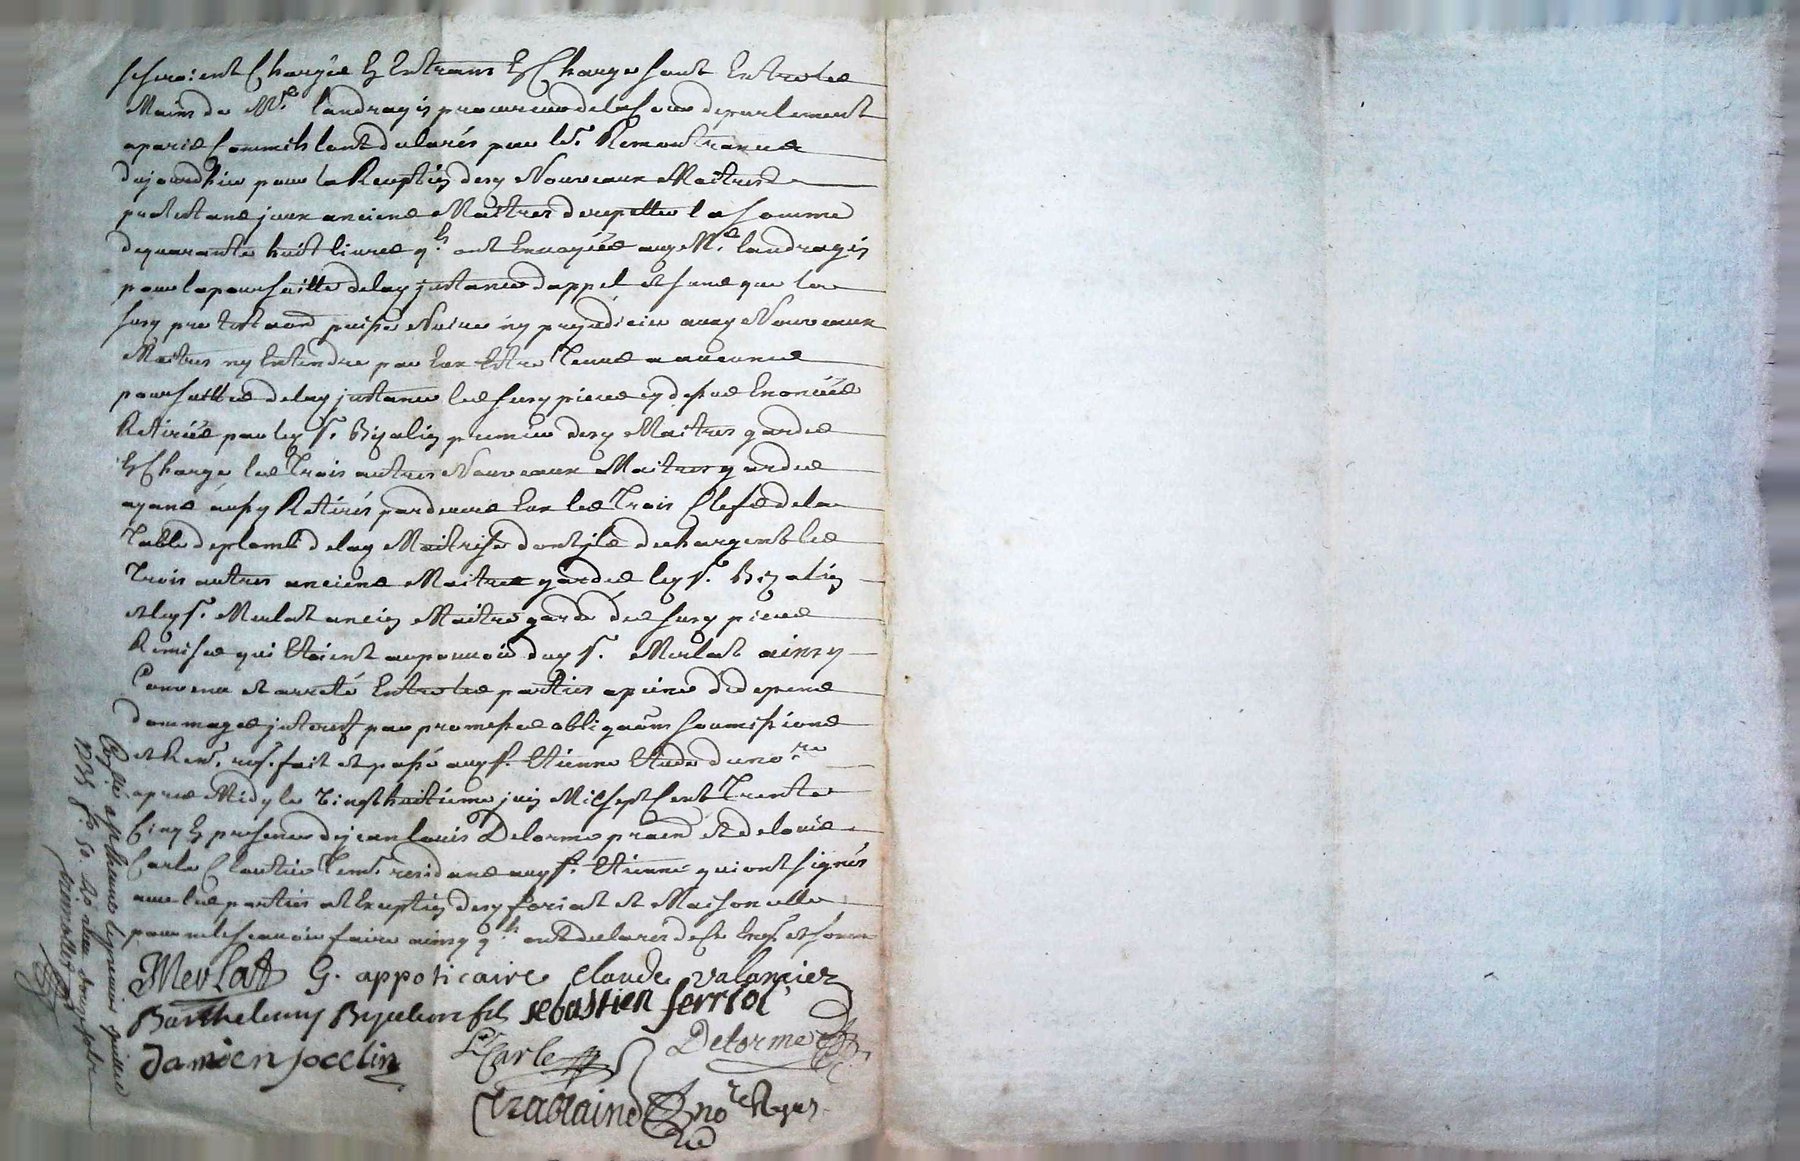 seroient chargés et entrans en charge sont entre les
mains de Me. Landragin procureur de la Cour de parlement
a paris comm ils l'ont déclarés par les. Remontrances
du jourdhuy pour la Reception desd nouveaux Maitres
protestans jceux anciens Maitres de repetter la somme
de quarante huit livres qls ont envoyées aud Me. Landragin
pour la poursuitte delad jnstance dappel et sans que les
susd protestaond puisse nuire ny prejudicier auxd Nouveaux
Maitres ny entendre par eux être tenus a aucunes
poursuittes delad jnstance les susd pieces cy dessus enoncées
Retirées par led Sr. Bijalion premier desd Maitres gardes
en Charge les trois autres Nouveaux Maitres gardes
ayans aussy Retirés pardevers eux les trois Clefs de la
table de plomb delad Maitrise dont jls dechargent les
trois autres anciens Maitres gardes led Sr. Bijalion
et led Sr. Merlat ancien Maitre garde des susd pieces
Remises qui étoient au pouvoir dud Sr. Merlat ainsy
Convenu et arreté entre les parties a peine de depens
dommages jnterest par promesses obligaons soumissions
et Ren. fait et passé aud St. Etienne étude du nore
apres Midy le vingt huitieme juin Mil sept Cent trente
Cinq en presence de jean Louis Delorme pratn et de louis
Carle Cloutier tem. residans aud St. Etienne qui ont signés
avec les parties et exception desd foriat et Maisonette
pour ne le scavoir faire ainsy qls ont declarés de ce enq. et somm
JMerlat G. appoticaire Claude valancier
Barthelemy Bijalion fils sebastien ferriol
Damien jocelin Ls Carle Delorme
Trablaine nore Royal
Conllé a St. Etienne le premier juillet
1735 Rs 50.